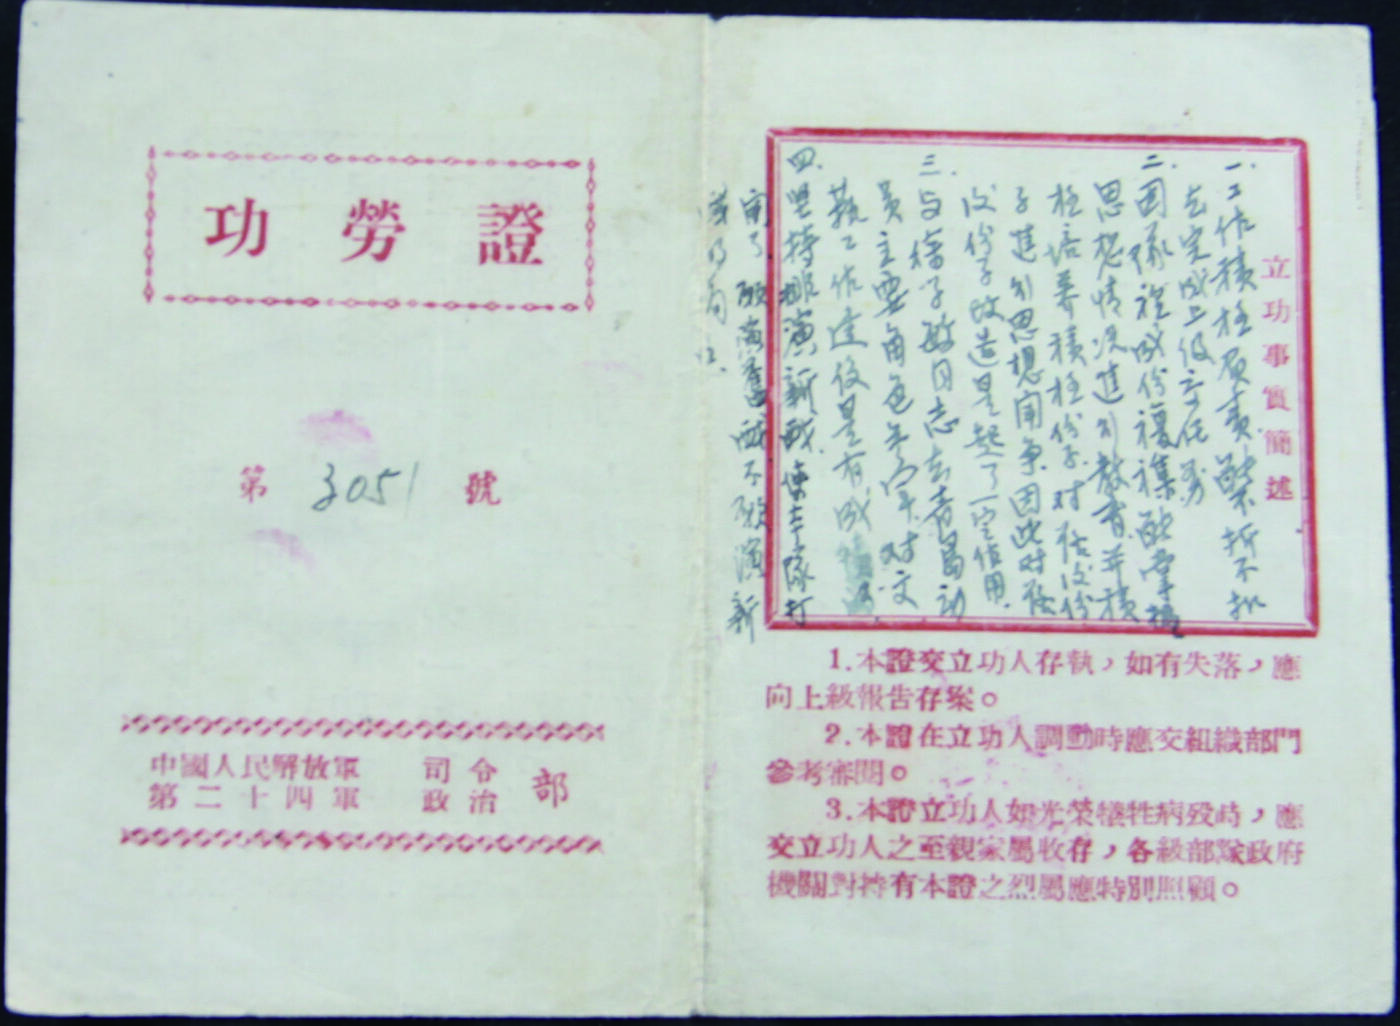 功勞證
第3051號
中國人民解放軍 司令
第二十四軍 政治 部
立功事實簡述
一.工作積極負責,能不折不扣
去完成上級交任務
二.因隊裡成份複雜能掌握
思想情况進行教育並積
極培養積極份子.对落后份
子進行思想闹争因此对落
后份子改造是起了一定作用.
三.与 同志
員主要角色 对文
工作 是有成績的
四.坚持排演新戲,使本隊打
演舊戲不 演新
1.本證交立功人存執,如有失落,應
向上級報告存案。
2.本證在立功人調動時應交組織部門
參考審閱。
3.本證立功人如光榮犧牲病歿時,應
交立功人之至親家屬收存,各級部隊政府
機關對持有本證之烈屬應特別照顧。